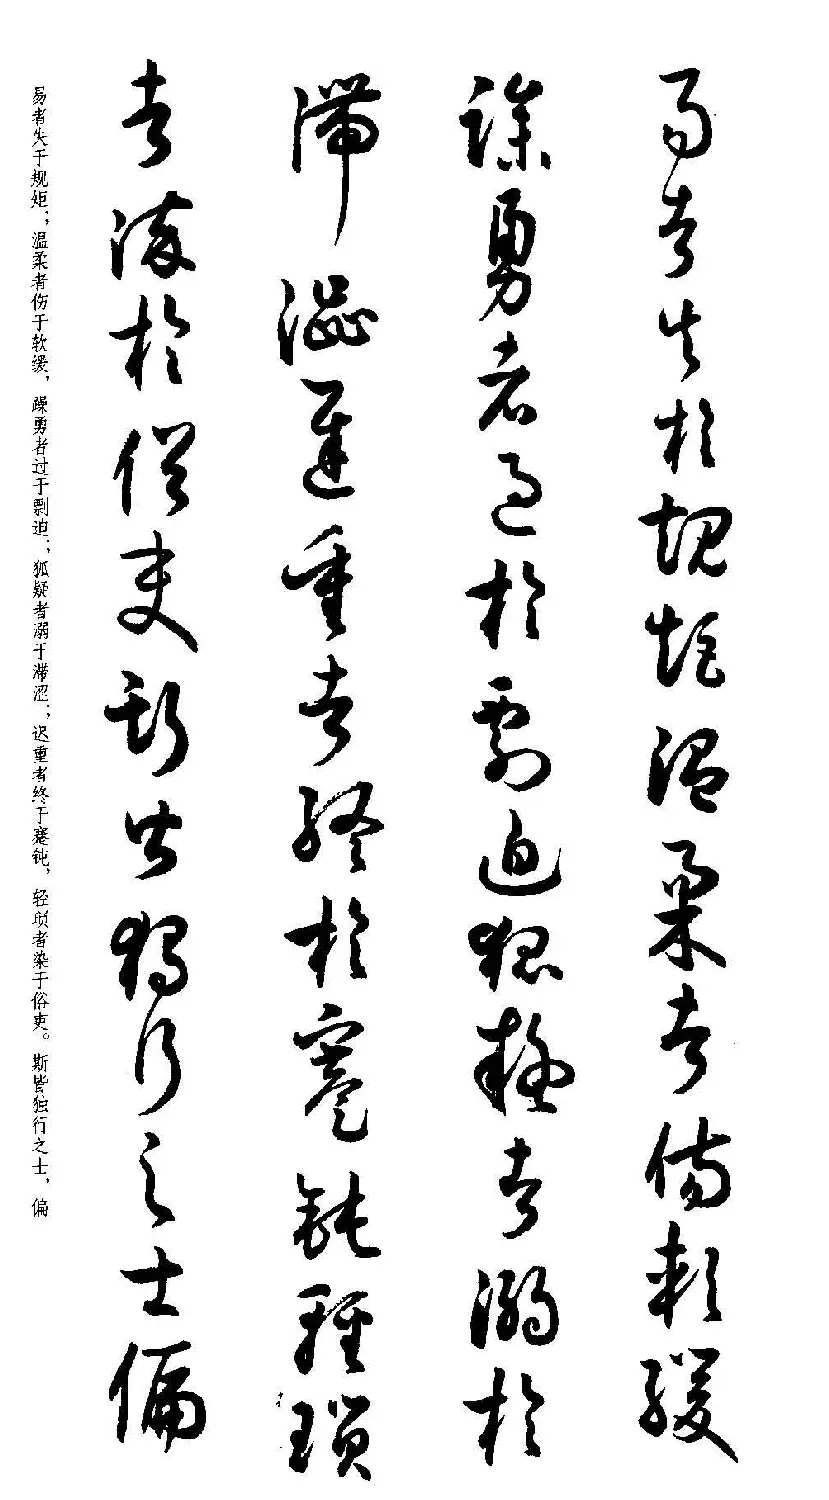 易者失於規矩温柔者傷於軟緩
躁勇者過於剽迫狐疑者溺於
滯澀遲重者終於蹇鈍輕瑣
者染於俗吏斯皆獨行之士偏
易者失于规矩；温柔者伤于软缓，躁勇者过于剽迫；狐疑者溺于滞涩；迟重者终于蹇钝，轻琐者染于俗吏。斯皆独行之士，偏